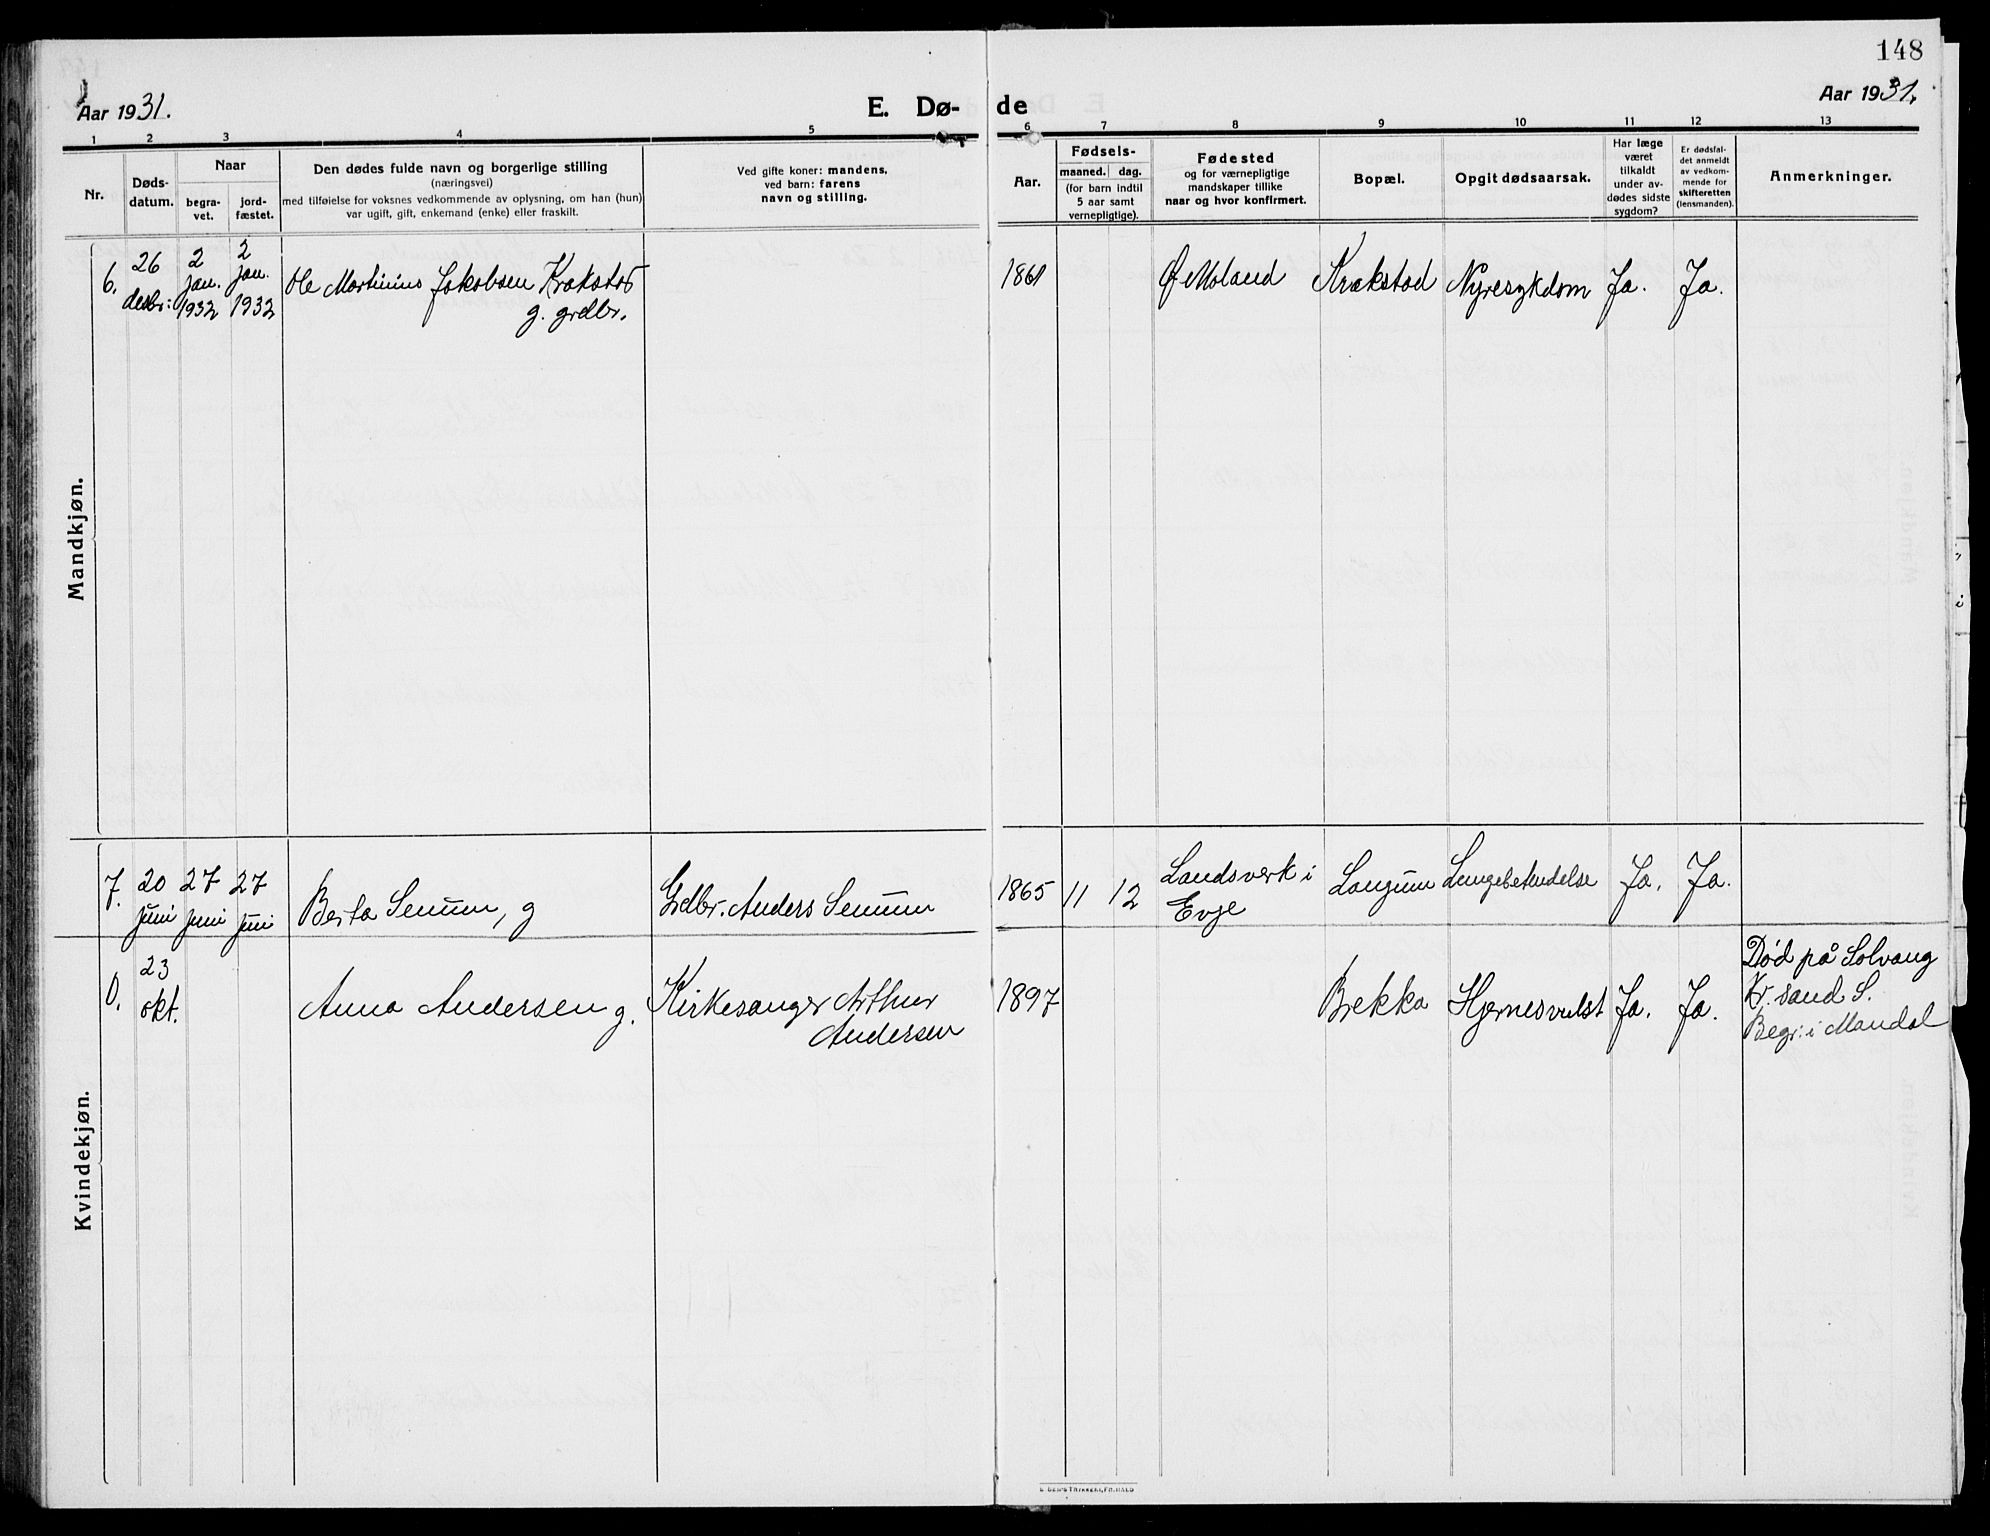 148
Aar 1931.
E. Dø-
de
Aar 1931.
1 2 3 4 5 6 7 8 9 10 11 12 13
Nr.
Døds-
datum.
Naar
begra-
vet.
jord-
fæstet.
Den dødes fulde navn og borgerlige stilling
(næringsvei)
med tilføielse for voksnes vedkommende av oplysning, om han (hun)
var ugift, gift, enkemand (enke) eller fraskilt.
Ved gifte koner: mandens,
ved barn: farens
navn og stilling.
Aar.
Fødsels-
maaned. dag.
(for barn indtil
5 aar samt
vernepligtige).
Fødested
og for værnepligtige
mandskaper tillike
naar og hvor konfirmert.
Bopæl.
Opgit dødsaarsak.
Har læge
været
tilkaldt
under av-
dødes sidste
sygdom?
Er dødsfal-
det anmeldt
av vedkom-
mende for
skifteretten
(lensmanden).
Anmerkninger.
Mandkjøn.
6.
26
desbr:
2
jan.
1932
2
jan.
1932
Ole Martinius Jakobsen Krakstad
g. grdbr.
1861
Ø. Moland
Krakstad
Nyresykdom
Ja.
Ja.
Kvindekjøn.
7.
20
juni
27
juni
27
juni
Berta Senum, g
Grdbr. Anders Senum
1865
11
12
Landsverk i
Evje
Langum
Lungebetendelse
Ja.
Ja.
0.
23
okt.
Anna Andersen g.
Kirkesanger Arthur
Andersen
1897
Brekka
Hjernesvulst
Ja.
Ja.
Død på Solvang
Kr. sand S.
Begr: i Mandal